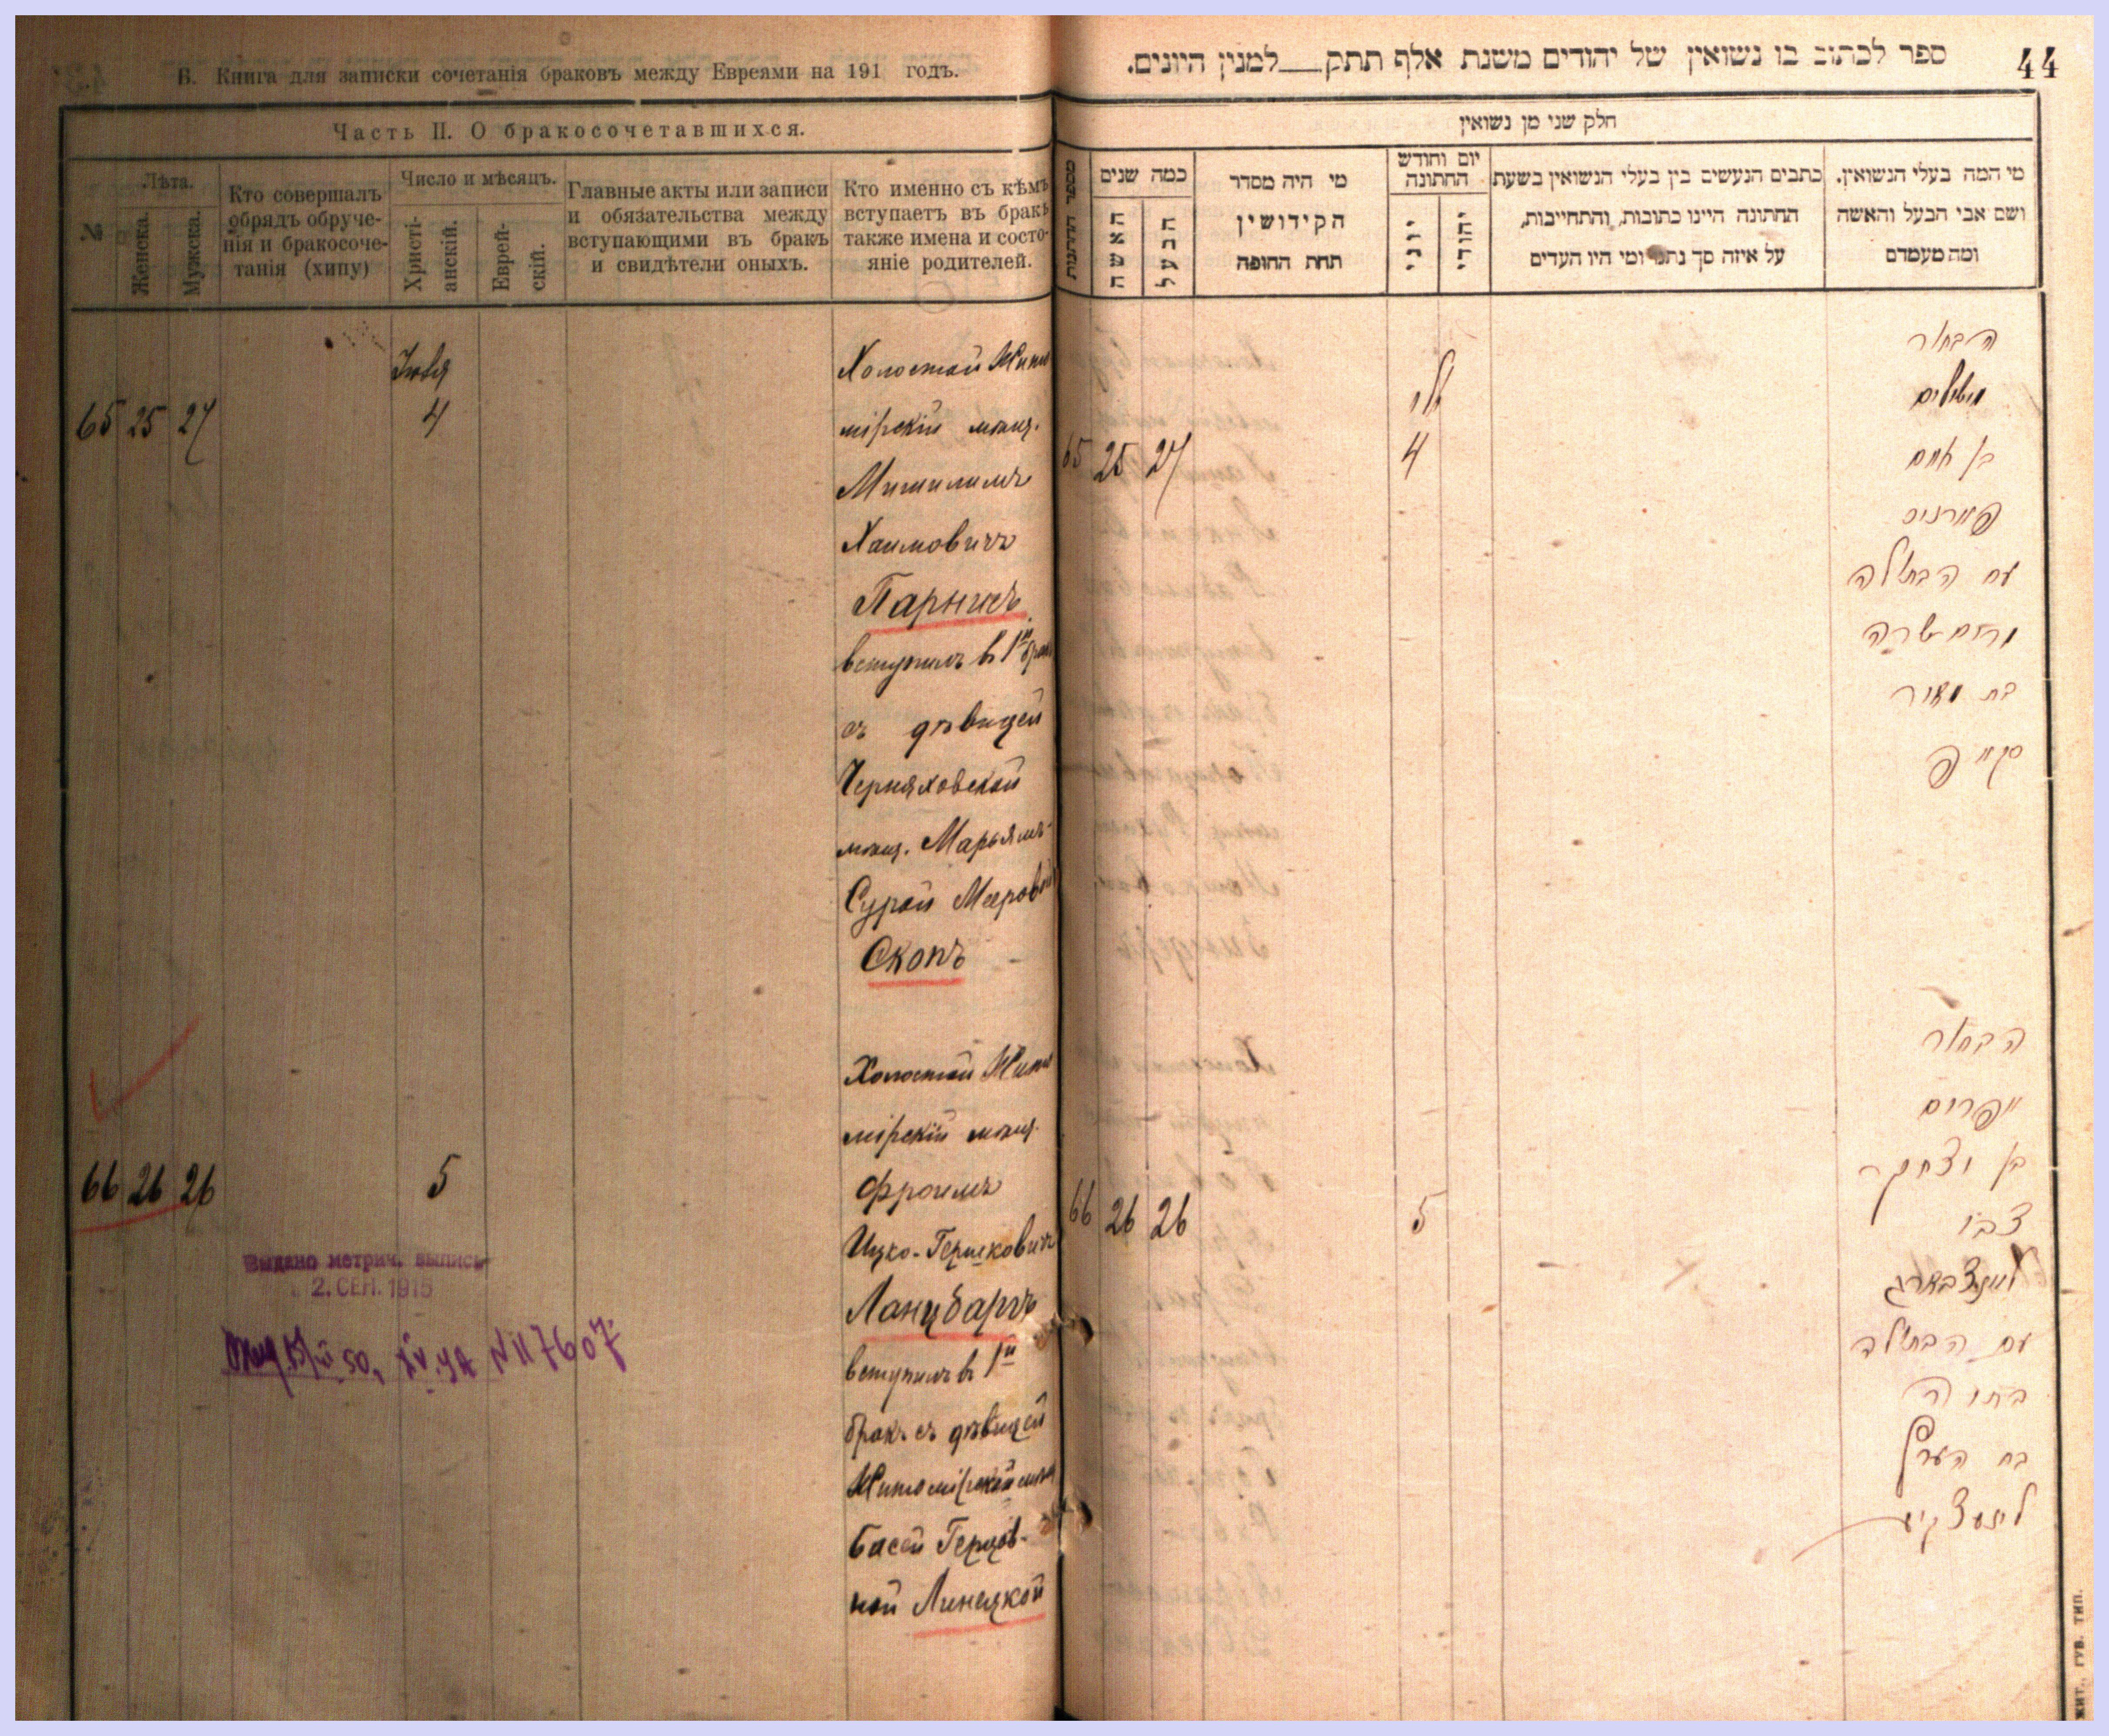 В. Книга для записки сочетанія браковъ между Евреями на 191 годъ.
Часть II. О бракосочетавшихся.
№
Лѣта.
Женска.
Мужска.
Кто совершалъ
обрядъ обруче-
нія и бракосоче-
танія (хипу)
Число и мѣсяцъ.
Христі-
анскій.
Еврей-
скій.
Главные акты или записи
и обязательства между
вступающими въ бракъ
и свидѣтели оныхъ.
Кто именно съ кѣмъ
вступаетъ въ бракъ
также имена и состо-
яніе родителей.
65 25 27
4
Холостой Жито
мірскій мѣщ.
Мишилимъ
Хаимовичъ
Парнисъ
вступилъ въ 1й бракъ
съ дѣвицей
Черняховской
мѣщ. Марьямъ-
Сурой Мееровой
Скопъ
66 26 26
5
Выдано метрич. выпись
2. СЕН. 1915
№ 117607
Холостой Жито
мірскій мѣщ.
Фроимъ
Ицко-Гершковичъ
Ланцбергъ
вступилъ въ 1й
бракъ съ дѣвицей
Житомірской мѣщ
Басей Герцов-
ной Линецкой
44
ספר לכתוב בו נשואין של יהודים משנת אלף תתק למנין היונים.
חלק שני מן נשואין
מספר החתונות
כמה שנים
האשה
הבעל
מי היה מסדר
הקידושין
תחת החופה
יום וחודש
החתונה
יוני
יהודי
כתבים הנעשים בין בעלי הנשואין בשעת
החתונה היינו כתובות, והתחייבות,
על איזה סך נתנו ומי היו העדים
מי המה בעלי הנשואין.
ושם אבי הבעל והאשה
ומה מעמדם
65 25 27
יולי
4
הבחור
משילים
בן חיים
פארניס
עם הבתולה
מרים שרה
בת מאיר
סקאפ
66 26 26
5
הבחור
אפרים
בן יצחק
צבי
לאנצבערג
עם הבתולה
בתיה
בת הערץ
לינעצקיע
ЖИТ., ГУБ. ТИП.